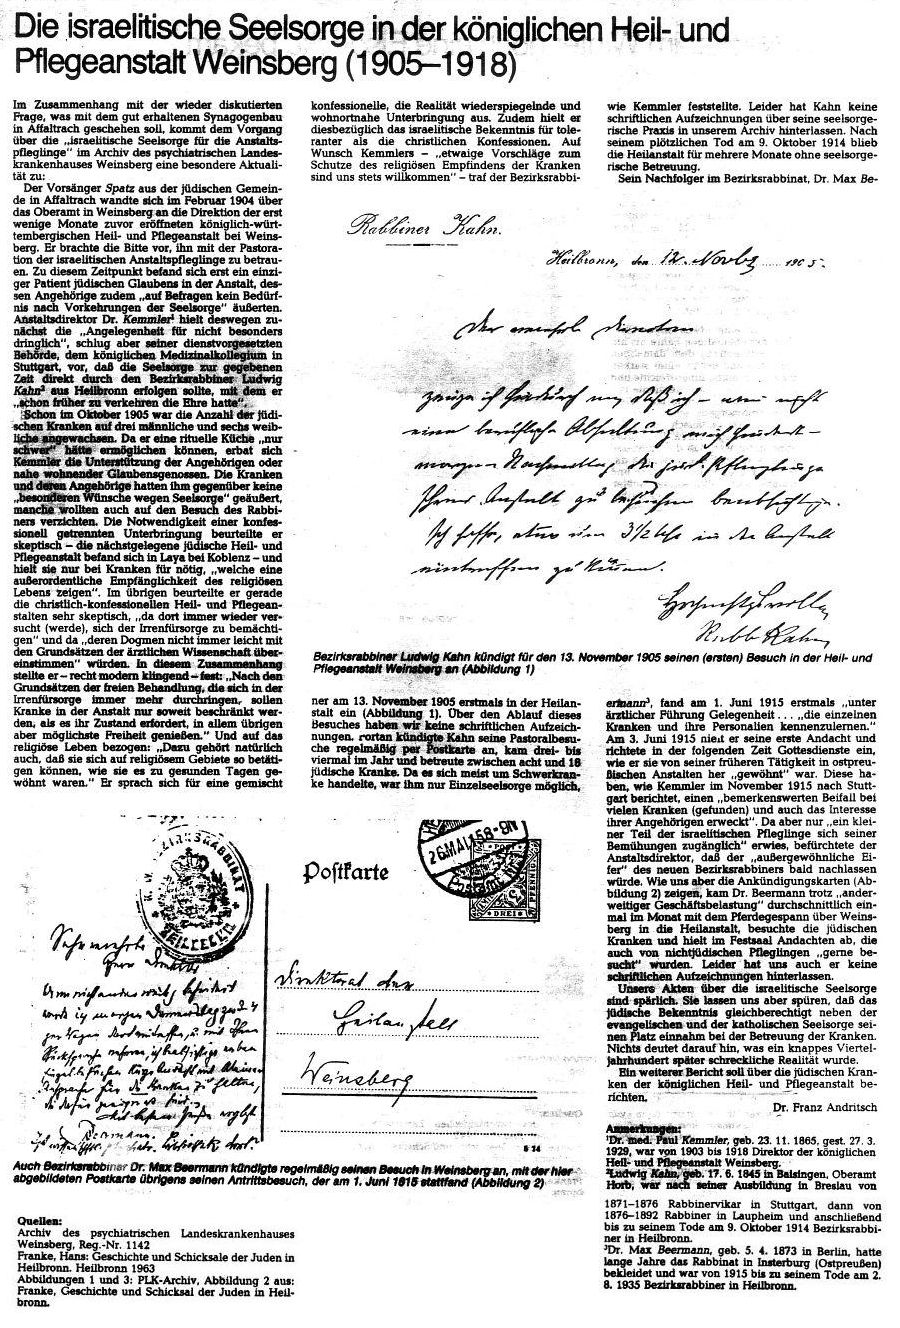 Die israelitische Seelsorge in der königlichen Heil- und
Pflegeanstalt Weinsberg (1905–1918)
Im Zusammenhang mit der wieder diskutierten
Frage, was mit dem gut erhaltenen Synagogenbau
in Affaltrach geschehen soll, kommt dem Vorgang
über die „israelitische Seelsorge für die Anstalts-
pfleglinge" im Archiv des psychiatrischen Landes-
krankenhauses Weinsberg eine besondere Aktuali-
tät zu:
Der Vorsänger Spatz aus der jüdischen Gemein-
de in Affaltrach wandte sich im Februar 1904 über
das Oberamt in Weinsberg an die Direktion der erst
wenige Monate zuvor eröffneten königlich-würt-
tembergischen Heil- und Pflegeanstalt bei Weins-
berg. Er brachte die Bitte vor, ihn mit der Pastora-
tion der israelitischen Anstaltspfleglinge zu betrau-
en. Zu diesem Zeitpunkt befand sich erst ein einzi-
ger Patient jüdischen Glaubens in der Anstalt, des-
sen Angehörige zudem „auf Befragen kein Bedürf-
nis nach Vorkehrungen der Seelsorge" äußerten.
Anstaltsdirektor Dr. Kemmler¹ hielt deswegen zu-
nächst die „Angelegenheit für nicht besonders
dringlich", schlug aber seiner dienstvorgesetzten
Behörde, dem königlichen Medizinalkollegium in
Stuttgart, vor, daß die Seelsorge zur gegebenen
Zeit direkt durch den Bezirksrabbiner Ludwig
Kahn² aus Heilbronn erfolgen sollte, mit dem er
„schon früher zu verkehren die Ehre hatte".
Schon im Oktober 1905 war die Anzahl der jüdi-
schen Kranken auf drei männliche und sechs weib-
liche angewachsen. Da er eine rituelle Küche „nur
schwer" hätte ermöglichen können, erbat sich
Kemmler die Unterstützung der Angehörigen oder
nahe wohnender Glaubensgenossen. Die Kranken
und deren Angehörige hatten ihm gegenüber keine
„besonderen Wünsche wegen Seelsorge" geäußert,
manche wollten auch auf den Besuch des Rabbi-
ners verzichten. Die Notwendigkeit einer konfes-
sionell getrennten Unterbringung beurteilte er
skeptisch – die nächstgelegene jüdische Heil- und
Pflegeanstalt befand sich in Laya bei Koblenz – und
hielt sie nur bei Kranken für nötig, „welche eine
außerordentliche Empfänglichkeit des religiösen
Lebens zeigen". Im übrigen beurteilte er gerade
die christlich-konfessionellen Heil- und Pflegean-
stalten sehr skeptisch, „da dort immer wieder ver-
sucht (werde), sich der Irrenfürsorge zu bemächti-
gen" und da „deren Dogmen nicht immer leicht mit
den Grundsätzen der ärztlichen Wissenschaft über-
einstimmen" würden. In diesem Zusammenhang
stellte er – recht modern klingend – fest: „Nach den
Grundsätzen der freien Behandlung, die sich in der
Irrenfürsorge immer mehr durchringen, sollen
Kranke in der Anstalt nur soweit beschränkt wer-
den, als es ihr Zustand erfordert, in allem übrigen
aber möglichste Freiheit genießen." Und auf das
religiöse Leben bezogen: „Dazu gehört natürlich
auch, daß sie sich auf religiösem Gebiete so betäti-
gen können, wie sie es zu gesunden Tagen ge-
wöhnt waren." Er sprach sich für eine gemischt
konfessionelle, die Realität wiederspiegelnde und
wohnortnahe Unterbringung aus. Zudem hielt er
diesbezüglich das israelitische Bekenntnis für tole-
ranter als die christlichen Konfessionen. Auf
Wunsch Kemmlers – „etwaige Vorschläge zum
Schutze des religiösen Empfindens der Kranken
sind uns stets willkommen" – traf der Bezirksrabbi-
wie Kemmler feststellte. Leider hat Kahn keine
schriftlichen Aufzeichnungen über seine seelsorge-
rische Praxis in unserem Archiv hinterlassen. Nach
seinem plötzlichen Tod am 9. Oktober 1914 blieb
die Heilanstalt für mehrere Monate ohne seelsorge-
rische Betreuung.
Sein Nachfolger im Bezirksrabbinat, Dr. Max Be-
Rabbiner Kahn.
Heilbronn, den 12. Novbr 1905.
zeige ich hierdurch an, daß ich – wenn nicht
Hochachtungsvoll
Rabb. Kahn
Bezirksrabbiner Ludwig Kahn kündigt für den 13. November 1905 seinen (ersten) Besuch in der Heil- und
Pflegeanstalt Weinsberg an (Abbildung 1)
ner am 13. November 1905 erstmals in der Heilan-
stalt ein (Abbildung 1). Über den Ablauf dieses
Besuches haben wir keine schriftlichen Aufzeich-
nungen. Fortan kündigte Kahn seine Pastoralbesu-
che regelmäßig per Postkarte an, kam drei- bis
viermal im Jahr und betreute zwischen acht und 18
jüdische Kranke. Da es sich meist um Schwerkran-
ke handelte, war ihm nur Einzelseelsorge möglich,
ermann³, fand am 1. Juni 1915 erstmals „unter
ärztlicher Führung Gelegenheit . . . „die einzelnen
Kranken und ihre Personalien kennenzulernen."
Am 3. Juni 1915 hielt er seine erste Andacht und
richtete in der folgenden Zeit Gottesdienste ein,
wie er sie von seiner früheren Tätigkeit in ostpreu-
ßischen Anstalten her „gewöhnt" war. Diese ha-
ben, wie Kemmler im November 1915 nach Stutt-
gart berichtet, einen „bemerkenswerten Beifall bei
vielen Kranken (gefunden) und auch das Interesse
ihrer Angehörigen erweckt". Da aber nur „ein klei-
ner Teil der israelitischen Pfleglinge sich seiner
Bemühungen zugänglich" erwies, befürchtete der
Anstaltsdirektor, daß der „außergewöhnliche Ei-
fer" des neuen Bezirksrabbiners bald nachlassen
würde. Wie uns aber die Ankündigungskarten (Ab-
bildung 2) zeigen, kam Dr. Beermann trotz „ander-
weitiger Geschäftsbelastung" durchschnittlich ein-
mal im Monat mit dem Pferdegespann über Weins-
berg in die Heilanstalt, besuchte die jüdischen
Kranken und hielt im Festsaal Andachten ab, die
auch von nichtjüdischen Pfleglingen „gerne be-
sucht" wurden. Leider hat uns auch er keine
schriftlichen Aufzeichnungen hinterlassen.
Unsere Akten über die israelitische Seelsorge
sind spärlich. Sie lassen uns aber spüren, daß das
jüdische Bekenntnis gleichberechtigt neben der
evangelischen und der katholischen Seelsorge sei-
nen Platz einnahm bei der Betreuung der Kranken.
Nichts deutet darauf hin, was ein knappes Viertel-
jahrhundert später schreckliche Realität wurde.
Ein weiterer Bericht soll über die jüdischen Kran-
ken der königlichen Heil- und Pflegeanstalt be-
richten.
Dr. Franz Andritsch
Postkarte
26 MAI 15 8-9N
DREI
Direktorat der
Heilanstalt
Weinsberg
Auch Bezirksrabbiner Dr. Max Beermann kündigte regelmäßig seinen Besuch in Weinsberg an, mit der hier
abgebildeten Postkarte übrigens seinen Antrittsbesuch, der am 1. Juni 1915 stattfand (Abbildung 2)
Quellen:
Archiv des psychiatrischen Landeskrankenhauses
Weinsberg, Reg.-Nr. 1142
Franke, Hans: Geschichte und Schicksale der Juden in
Heilbronn. Heilbronn 1963
Abbildungen 1 und 3: PLK-Archiv, Abbildung 2 aus:
Franke, Geschichte und Schicksal der Juden in Heil-
bronn.
Anmerkungen:
¹Dr. med. Paul Kemmler, geb. 23. 11. 1865, gest. 27. 3.
1929, war von 1903 bis 1918 Direktor der königlichen
Heil- und Pflegeanstalt Weinsberg.
²Ludwig Kahn, geb. 17. 6. 1845 in Baisingen, Oberamt
Horb, war nach seiner Ausbildung in Breslau von
1871–1876 Rabbinervikar in Stuttgart, dann von
1876–1892 Rabbiner in Laupheim und anschließend
bis zu seinem Tode am 9. Oktober 1914 Bezirksrabbi-
ner in Heilbronn.
³Dr. Max Beermann, geb. 5. 4. 1873 in Berlin, hatte
lange Jahre das Rabbinat in Insterburg (Ostpreußen)
bekleidet und war von 1915 bis zu seinem Tode am 2.
8. 1935 Bezirksrabbiner in Heilbronn.